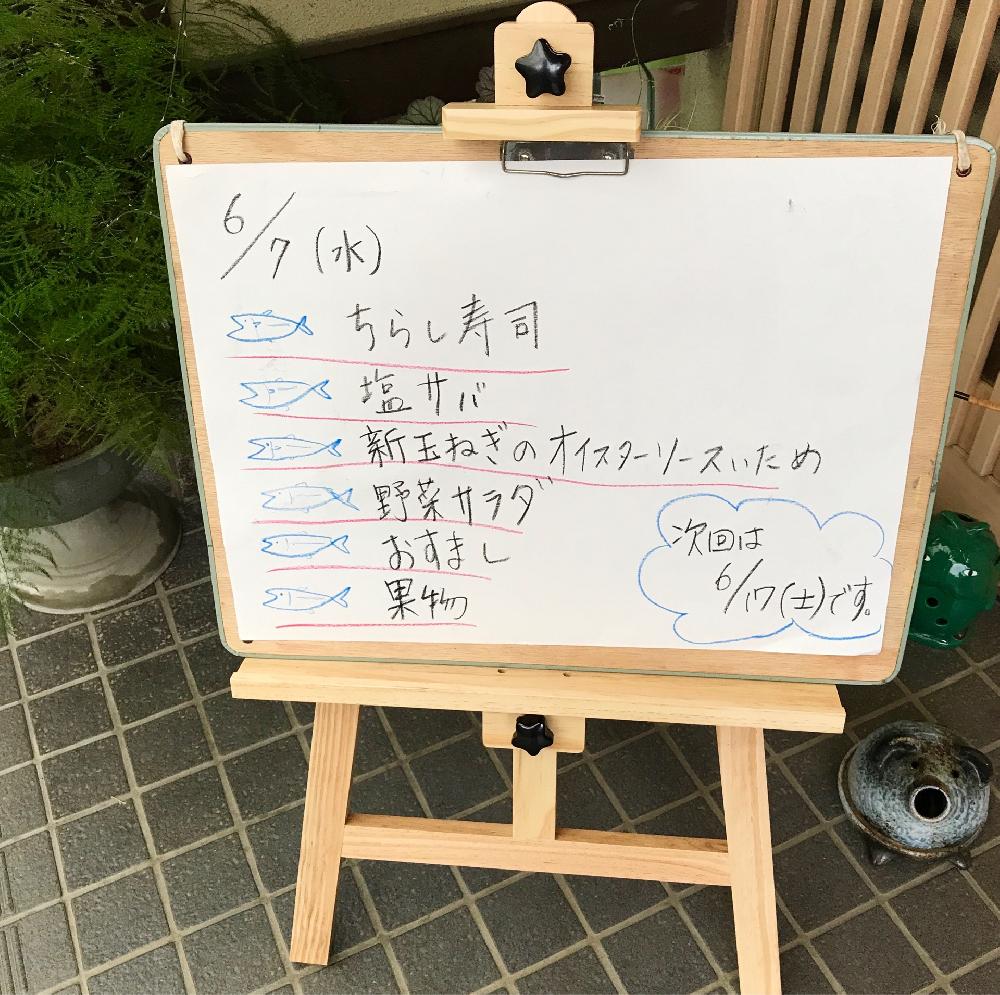 6/7 (水)
ちらし寿司
塩サバ
新玉ねぎのオイスターソースいため
野菜サラダ
おすまし
果物
次回は
6/17(土)です。